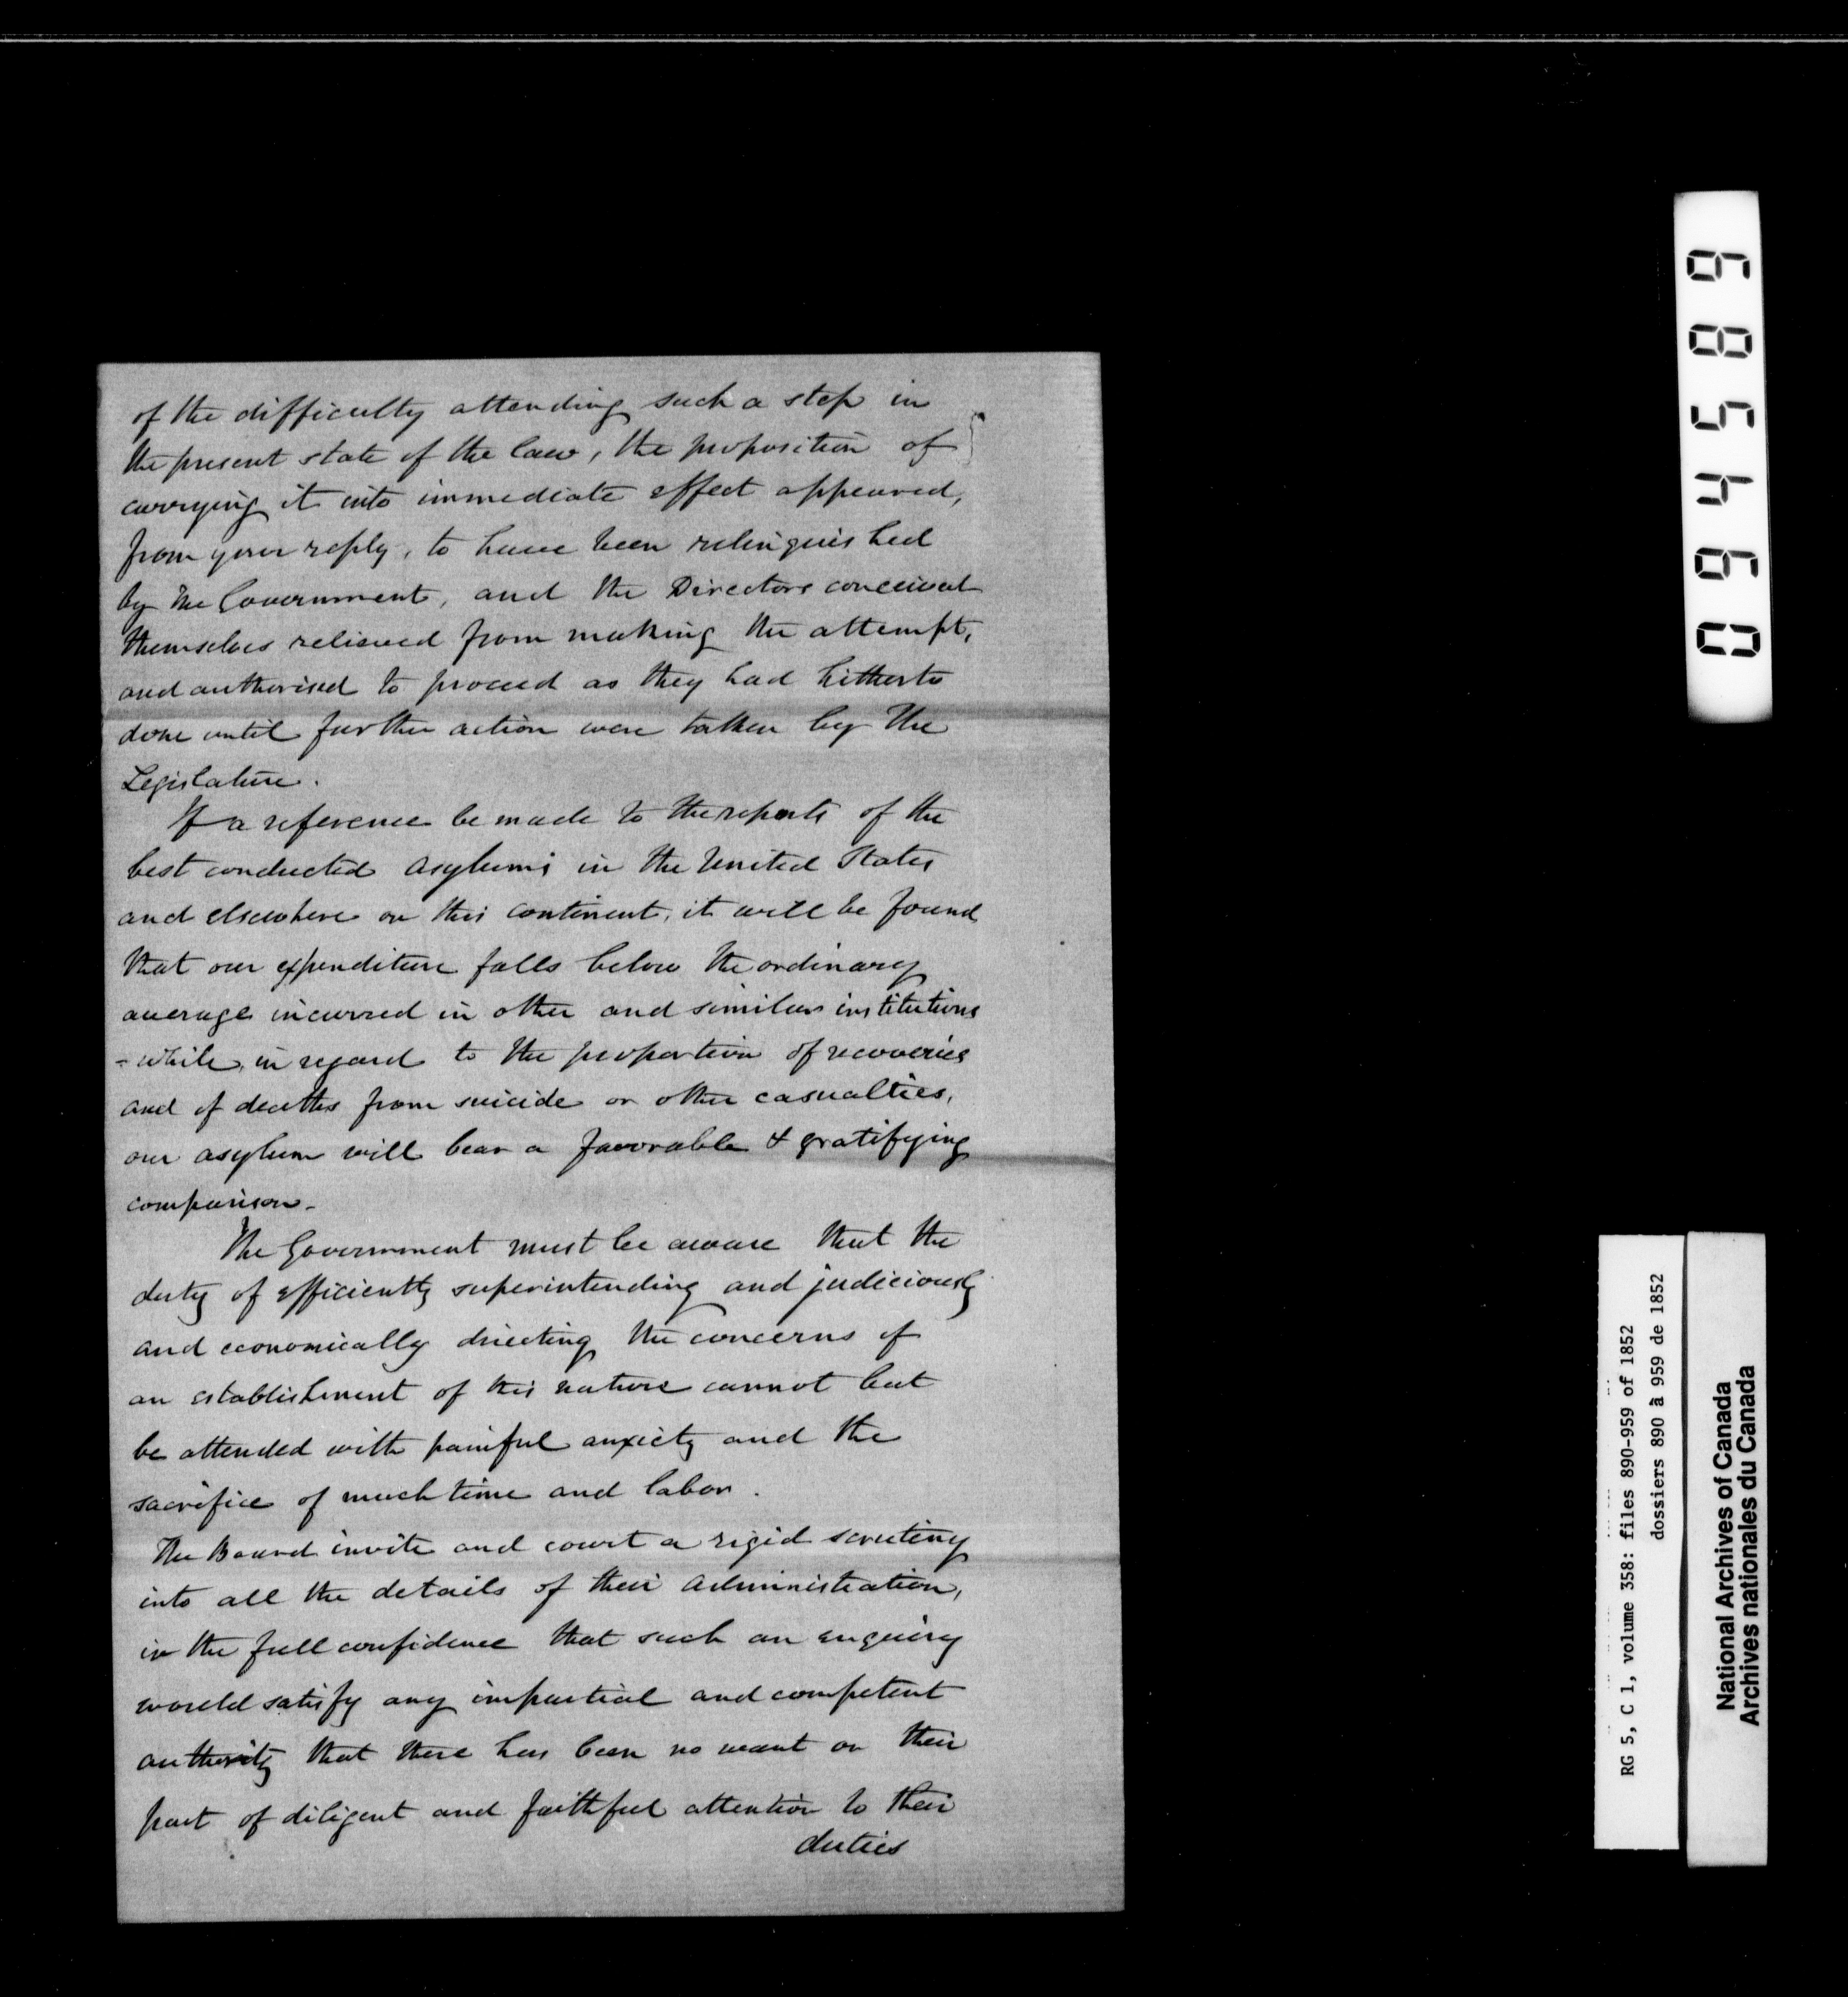 of the difficulty attending such a step in
the present state of the law, the proposition of
carrying it into immediate effect appeared,
from your reply, to have been relinquished
by the Government, and the Directors conceived
themselves relieved from making the attempt,
and authorised to proceed as they had hitherto
done until further action were taken by the
Legislature.
If a reference be made to the reports of the
best conducted asylums in the United States
and elsewhere on this continent, it will be found
that our expenditure falls below the ordinary
average incurred in other and similar institutions
- while, in regard to the proportion of recoveries
and of deaths from suicide or other casualties,
our asylum will bear a favorable & gratifying
comparison.
The Government must be aware that the
duty of efficiently superintending and judiciously
and economically directing the concerns of
an establishment of this nature cannot but
be attended with painful anxiety and the
sacrifice of much time and labor.
The Board invite and court a rigid scrutiny
into all the details of their administration,
in the full confidence that such an enquiry
would satisfy any impartial and competent
authority that there has been no want on their
part of diligent and faithful attention to their
duties
069458689
RG 5, C 1, volume 358: files 890-959 of 1852
dossiers 890 à 959 de 1852
National Archives of Canada
Archives nationales du Canada